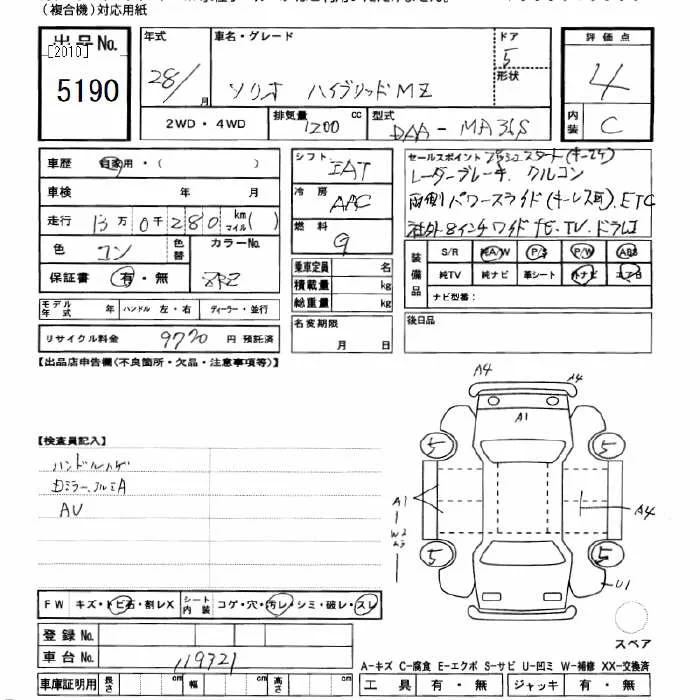 （複合機）対応用紙
出品No. [2010] 5190
年式 28/ 月
車名・グレード ソリオ ハイブリッドMZ
ドア 5 形状
評価点 4
内装 C
2WD・4WD
排気量 1200 cc
型式 DAA-MA36S
車歴 自家用・( )
車検 年 月
走行 13万0千280 km マイル( )
色 コン 色替 カラーNo.
保証書 有・無 ZRZ
モデル年式 年 ハンドル 左・右 ディーラー・並行
リサイクル料 9770 円 預託済
シフト IAT
冷房 AAC
燃料 G
乗車定員 名
積載量 kg
総重量 kg
名変期限 月 日
セールスポイント プッシュスタート(キー2ケ)
レーダーブレーキ、クルコン
両側パワースライド(キーレス可)、ETC
社外8インチワイドナビ、TV、ドラレコ
装備品 S/R 純A/W P/S P/W ABS
純TV 純ナビ 革シート 外ナビ エアB
ナビ型番：
後日品
【出品店申告欄(不良箇所・欠品・注意事項等)】
【検査員記入】
ハンドルハゲ
Dミラー、アルミA
AU
A4
A4
A1
5
5
A1
A4
W2
5
5
U1
スペア
FW キズ・トビ石・割レX シート内装 コゲ・穴・汚レ・シミ・破レ・スレ
登録No.
車台No. 119321
車庫証明用 長さ cm 幅 cm 高さ cm
A-キズ C-腐食 E-エクボ S-サビ U-凹ミ W-補修 XX-交換済
工具 有・無 ジャッキ 有・無